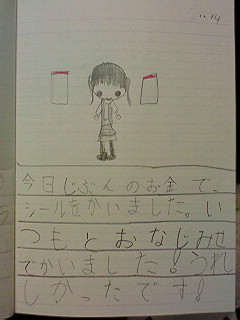 11.14
今日じぶんのお金で、
シールをかいました。い
つもとおなじみせ
でかいました!うれ
しかったです!